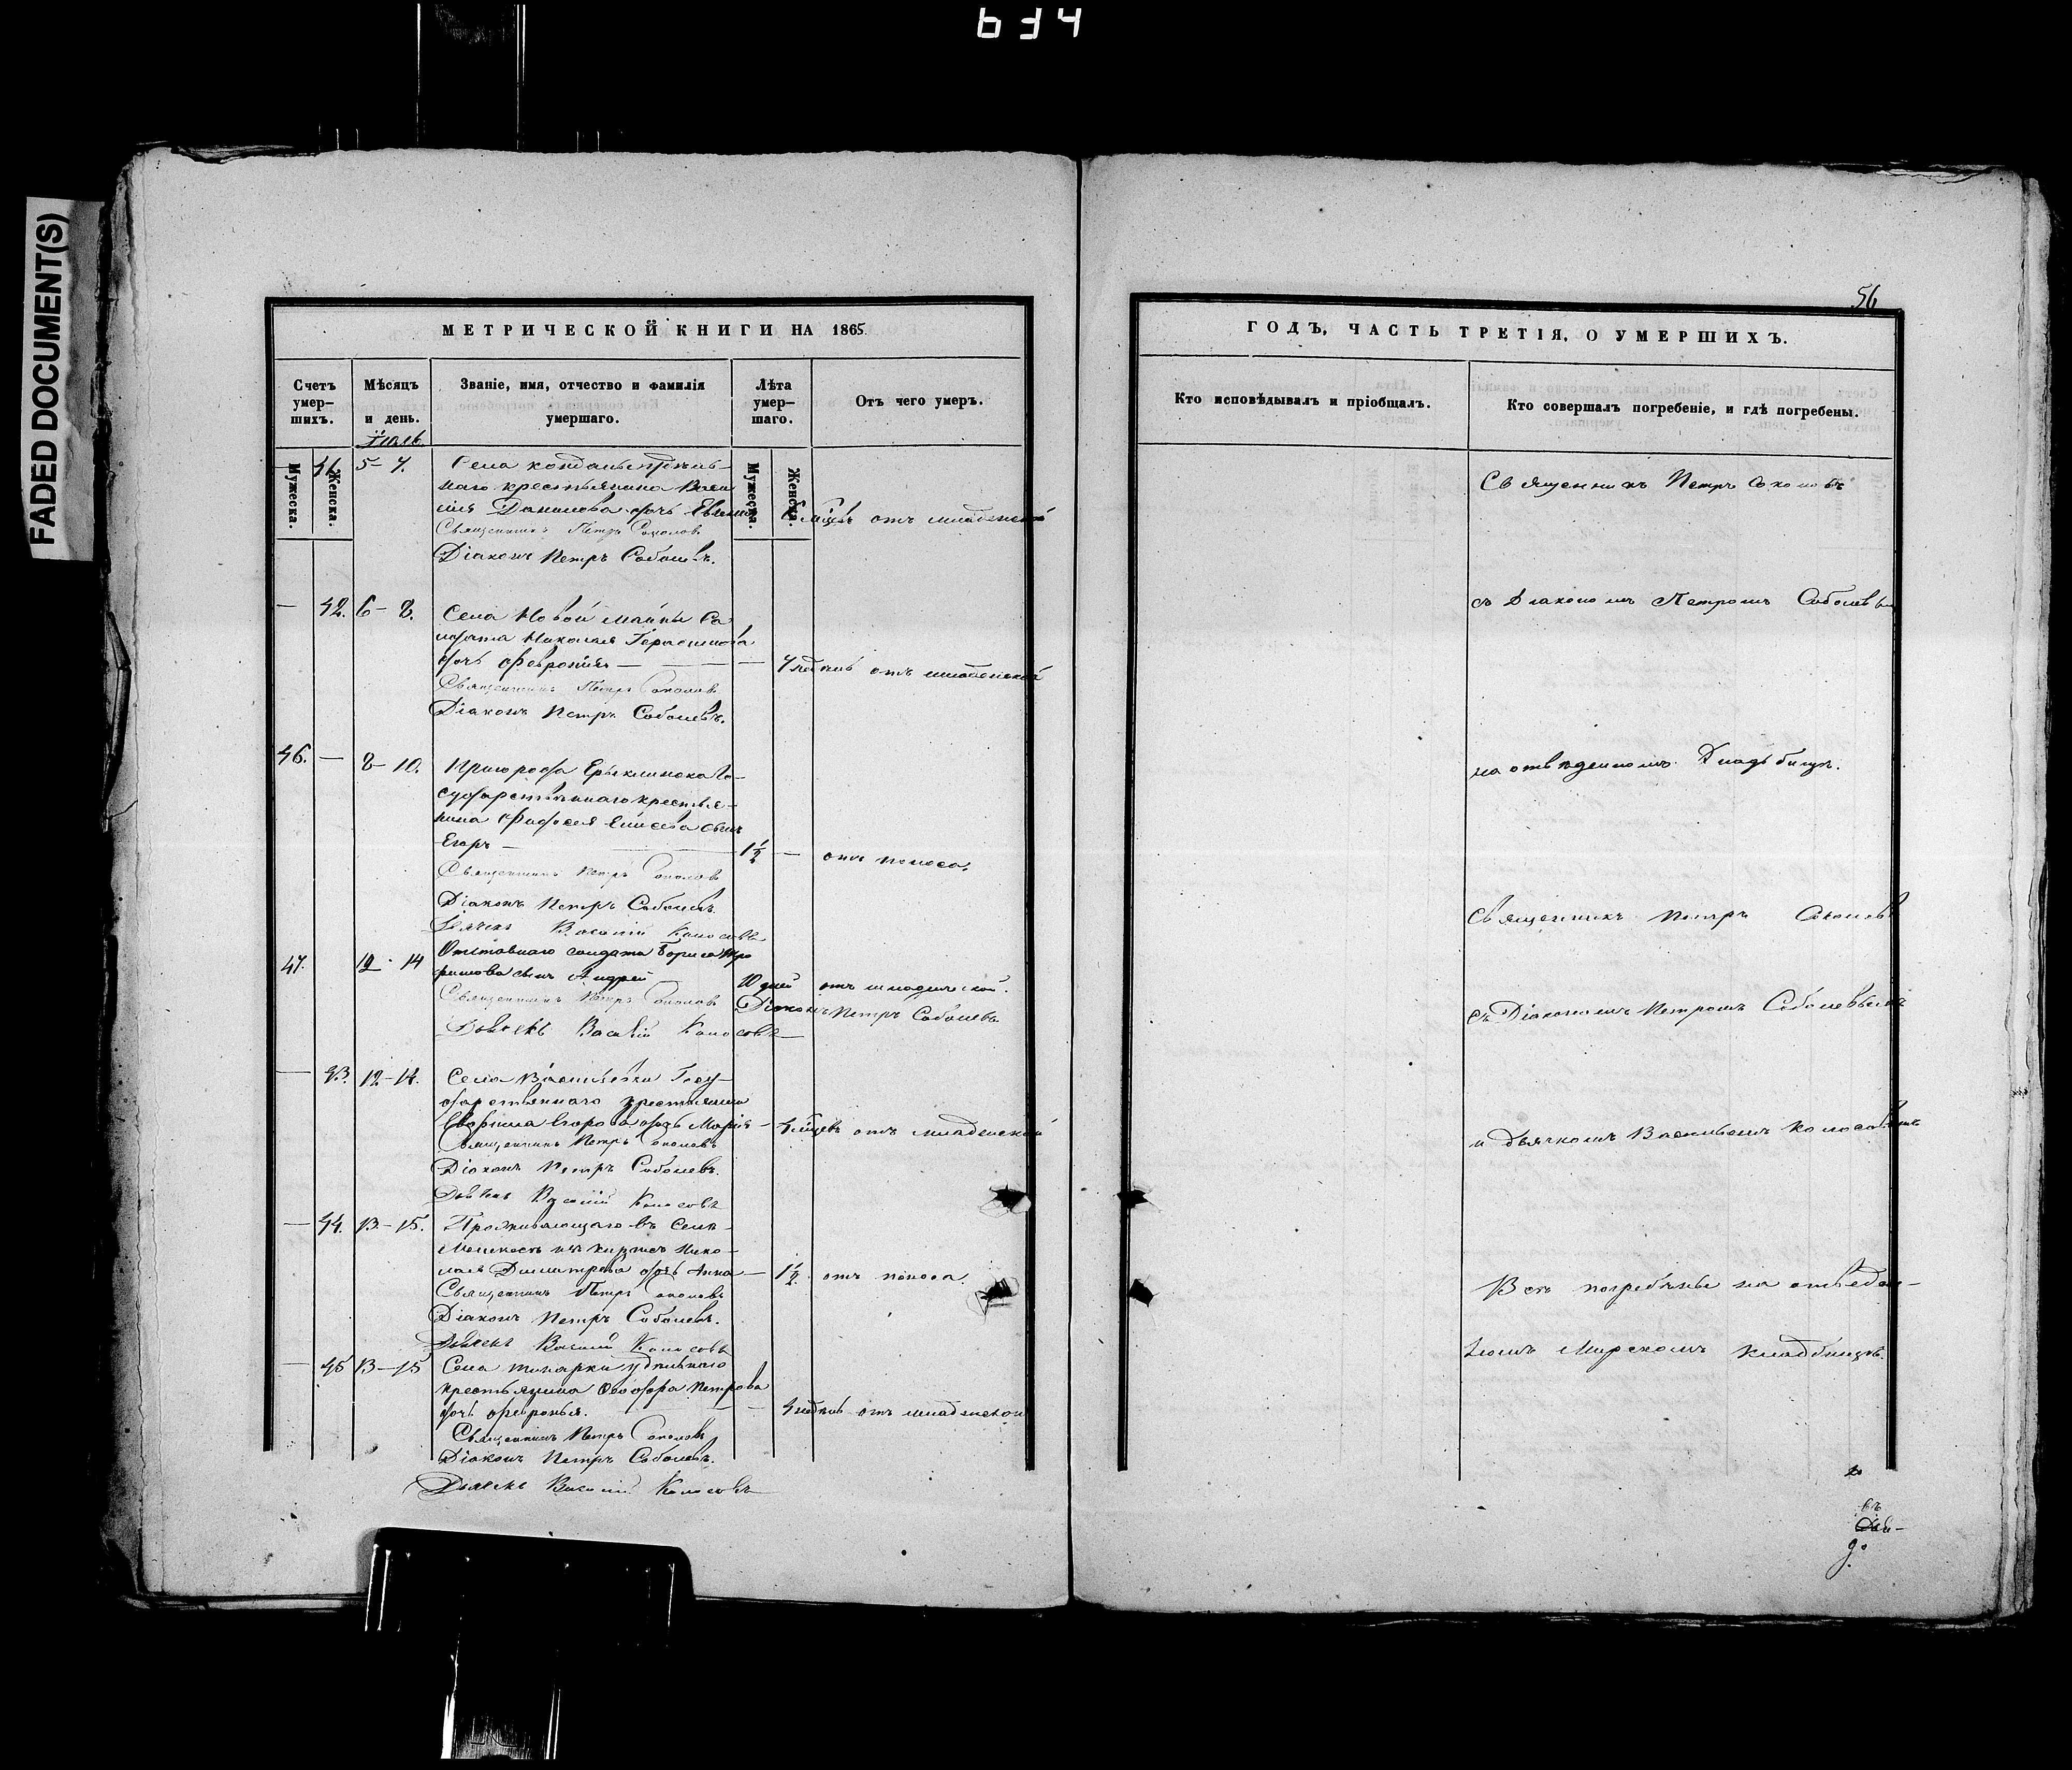 634
FADED DOCUMENT(S)
МЕТРИЧЕСКОЙ КНИГИ НА 1865
Счетъ умер-шихъ.
Мѣсяцъ и день.
Званіе, имя, отчество и фамилія умершаго.
Лѣта умер-шаго.
Отъ чего умеръ.
Мужеска.
Женска.
Мужеска.
Женска.
Іюль
41. 5-7. Села
наго крестьянина Васи
лія Данилова дочь
отъ младенской
Священникъ Петръ Соколовъ
Діаконъ Петръ Соболевъ.
— 42. 6-8. Села Новой Майны Со
лдата Николая Герасимова
дочь Февронія — 4 недѣль отъ младенской
Священникъ Петръ Соколовъ
Діаконъ Петръ Соболевъ.
46. — 8-10. Пригорода Ерыклинска Го-
сударственнаго крестья-
нина Елисѣева сынъ
Егоръ — 1½ — отъ поноса.
Священникъ Петръ Соколовъ
Діаконъ Петръ Соболевъ.
Дьячекъ Василій Колосовъ
47. 12-14 Отставнаго солдата Бориса Тро
фимова сынъ Андрей 10 дней отъ младенской.
Священникъ Петръ Соколовъ Діаконъ Петръ Соболевъ
Дьячекъ Василій Колосовъ
— 43. 12-14. Села Васильевки Госу-
дарственнаго крестьянина
Егорова дочь Марія — отъ младенской
Священникъ Петръ Соколовъ
Діаконъ Петръ Соболевъ.
Дьячекъ Василій Колосовъ
— 44. 13-15. Проживающаго въ Селѣ
Нико-
лая Димитрева дочь Анна — 1½ отъ поноса.
Священникъ Петръ Соколовъ
Діаконъ Петръ Соболевъ.
Дьячекъ Василій Колосовъ
— 45 13-15 Села удѣльнаго
крестьянина Ѳеодора Петрова
дочь Февронья. — 4 недѣль отъ младенской
Священникъ Петръ Соколовъ
Діаконъ Петръ Соболевъ.
Дьячекъ Василій Колосовъ
56
ГОДЪ, ЧАСТЬ ТРЕТІЯ, О УМЕРШИХЪ.
Кто исповѣдывалъ и пріобщалъ.
Кто совершалъ погребеніе, и гдѣ погребены.
Священникъ Петръ Соколовъ
съ Діакономъ Петромъ Соболевым
на отведенномъ Кладбищѣ.
Священникъ Петръ Соколовъ
съ Діакономъ Петромъ Соболевымъ
и дьячкомъ Васильемъ Колосовымъ
Всѣ погребены на отведен-
номъ Мирскомъ кладбищѣ.